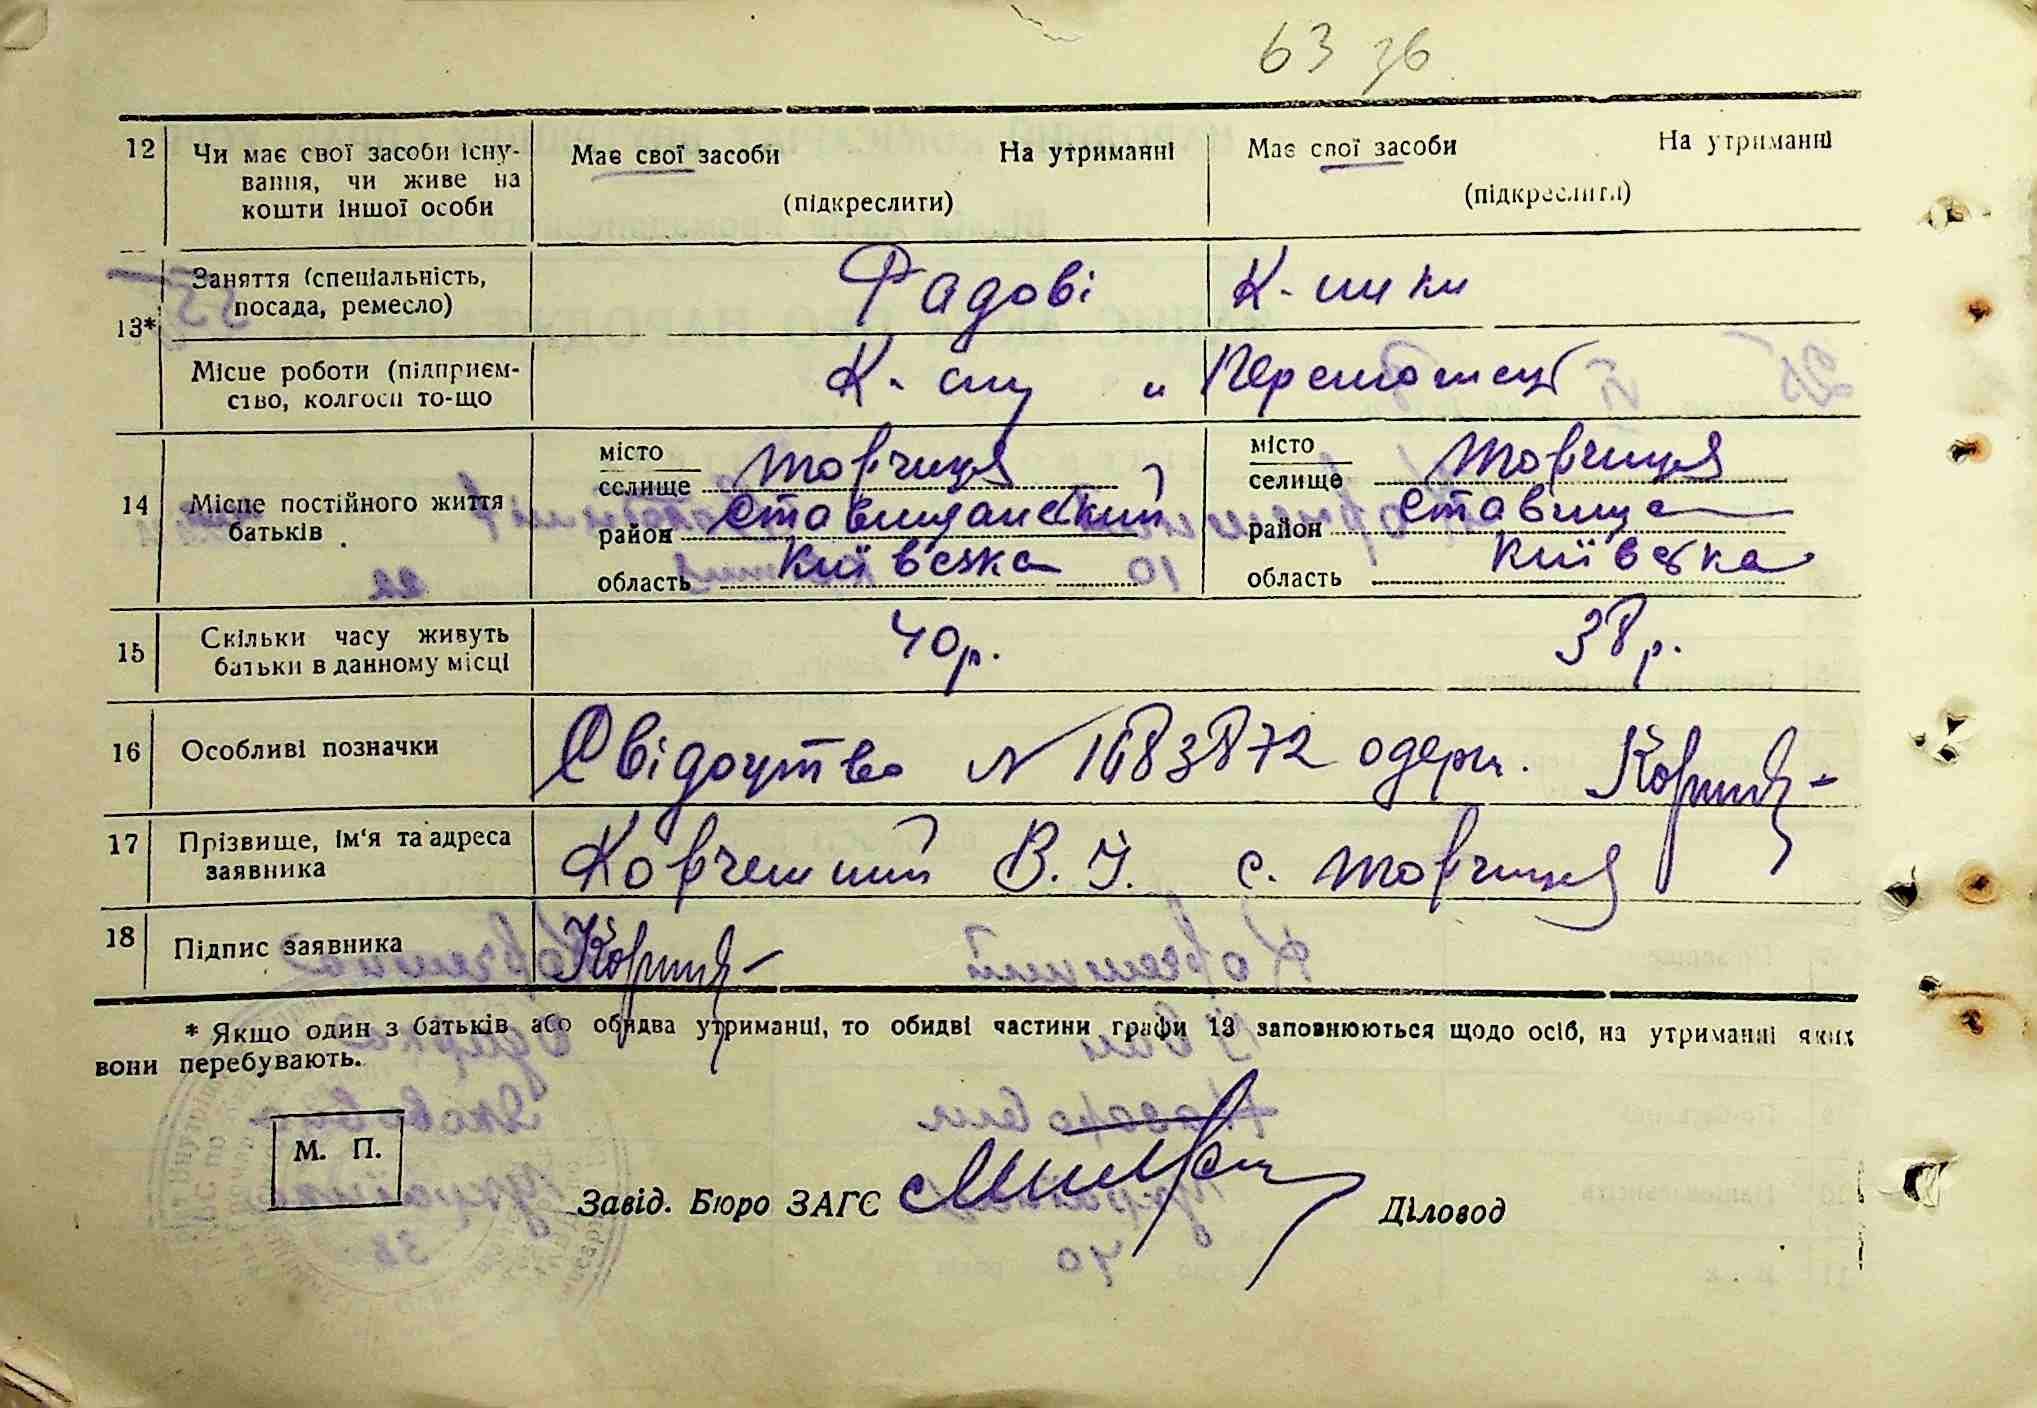 63 зв
12 Чи має свої засоби існу-
вання, чи живе на
кошти іншої особи
Має свої засоби На утриманні
(підкреслити)
Має свої засоби На утриманні
(підкреслити)
13* Заняття (спеціальність,
посада, ремесло)
Рядові К-ники
Місце роботи (підприєм-
ство, колгосп то-що
К-сп "Перемога"
14 Місце постійного життя
батьків
місто
селище Товчиця
район Ставищанский
область Київська
місто
селище Товчиця
район Ставище
область Київська
15 Скільки часу живуть
батьки в данному місці
40р. 38р.
16 Особливі позначки
Свідоцтво N 1683872 одерж.
17 Прізвище, ім'я та адреса
заявника
Корчешний В. І. с. Товчиця
18 Підпис заявника
* Якщо один з батьків або обидва утриманці, то обидві частини графи 13 заповнюються щодо осіб, на утриманні яких
вони перебувають.
М. П.
Завід. Бюро ЗАГС Діловод